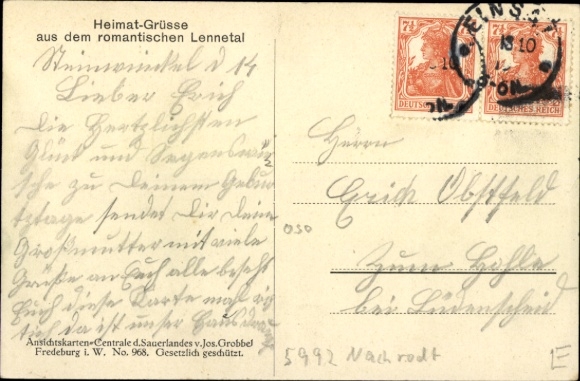 Heimat-Grüsse
aus dem romantischen Lennetal
Steinwinckel d 14
Lieber Erich
Die Hertzlichsten
Glück und Segenswün
sche zu Deinem Gebur
tztage sendet Dir Deine
Großmutter mit viele
Grüße an Euch alle beseht
Euch diese Karte mal rich
tich da ist unser Haus drauf
Ansichtskarten-Centrale d. Sauerlandes v. Jos. Grobbel
Fredeburg i. W. No. 968. Gesetzlich geschützt.
7½ 7½
DEUTSCHES REICH
EINS
10
Herrn
Erich Obstfeld
oso
Zum Hohle
bei Lüdenscheid
5992 Nachrodt
E